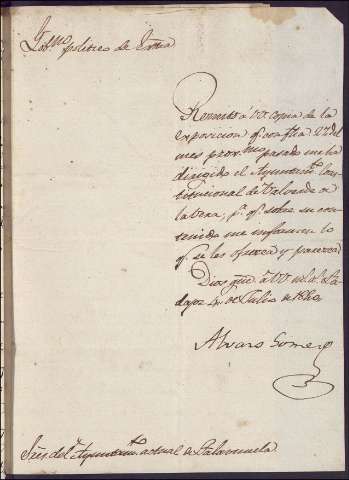 Gob.no politico de Extra
Remito á VV copia de la
exposicion q.e con fha 22 del
mes prox.mo pasado me ha
dirigido el Ayuntam.to Cons-
titucional de
la Vera, p.a q.e sobre su con-
tenido me informen lo
q.e se les ofrezca y parezca
Dios gue. á VV m.s a.s Ba-
dajoz 4 de Julio de 1820
Alvaro Gomez
Sres. del Ayuntam.to actual de Talaveruela